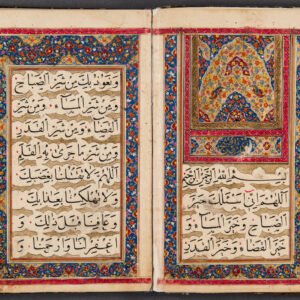 بسم الله الرحمن الرحيم
اللهم انى اسئلك خير
الصباح وخير المساء و
خير القضاء وخير القدر
ونعوذ بك من شر الصباح
ومن شر المساء ومن شر
القضاء ومن شر القدر
ومن شر ما جرى به القلم
اللهم لا تقتلنا بغضبك
ولا تهلكنا بعذابك
وعافنا قبل ذلك و
اغفر لنا وارحمنا و